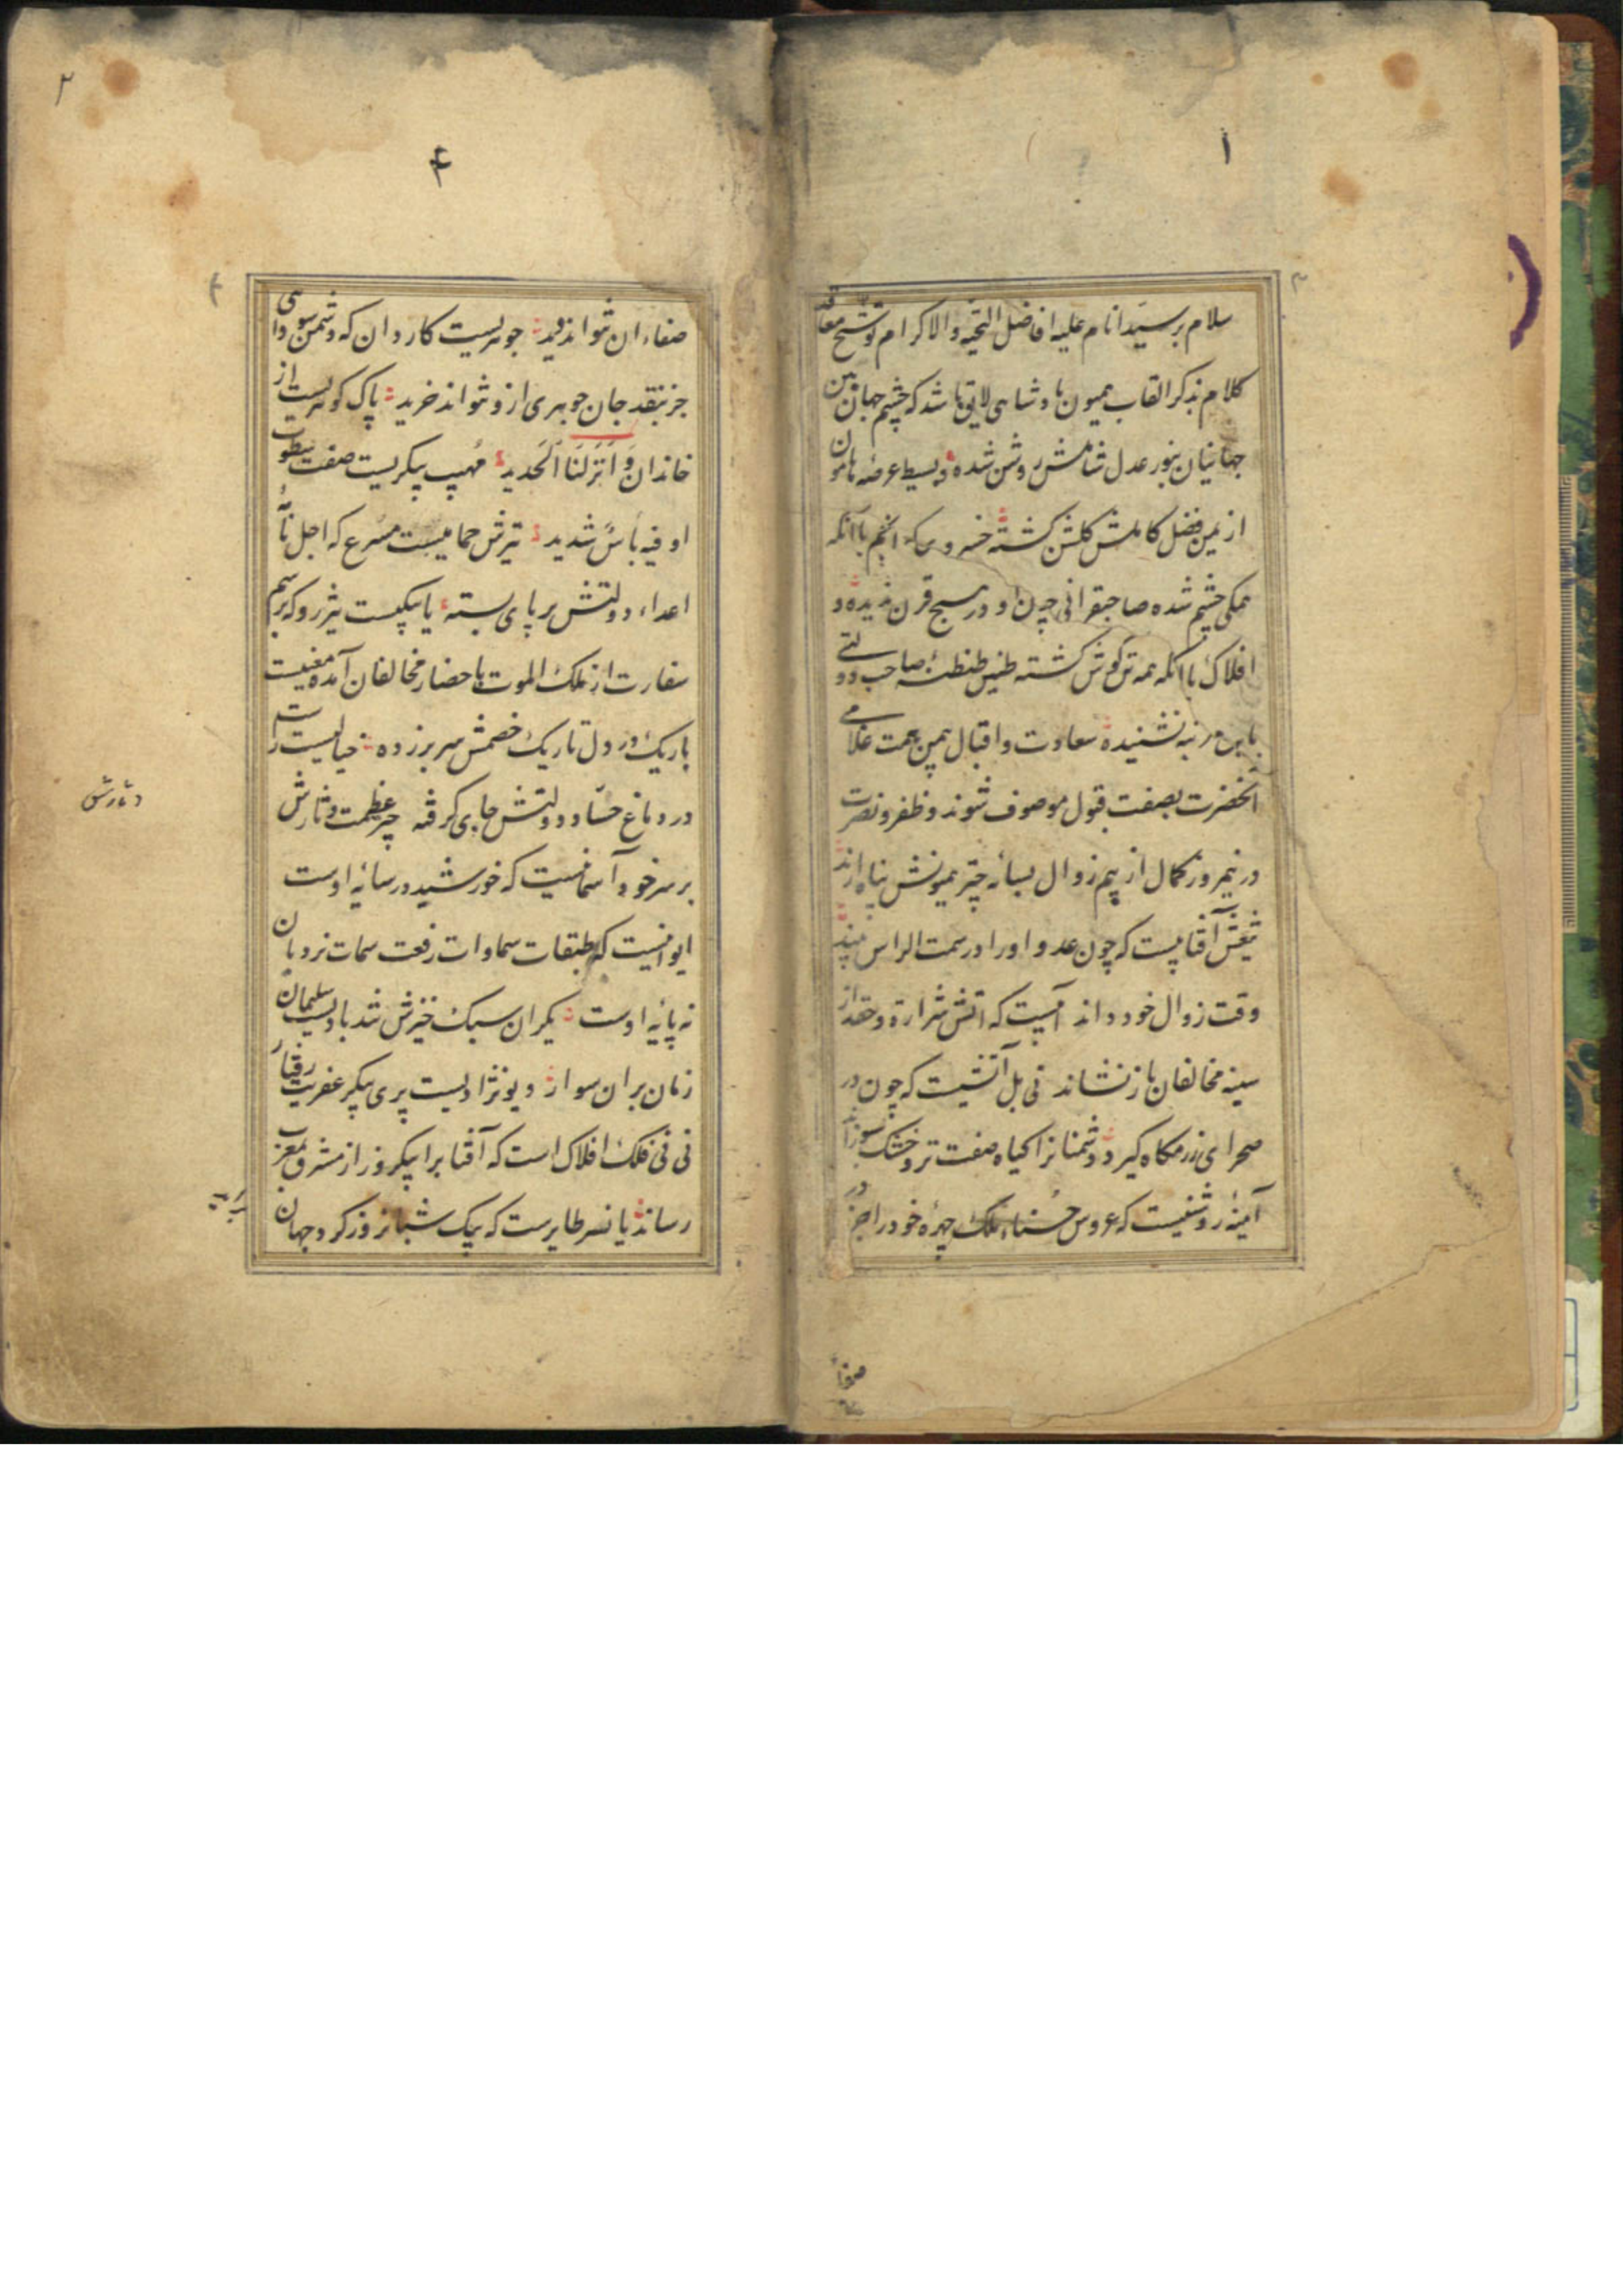 ۱
سلام بر سید انام علیه افاضل التحیة والاکرام توشیح معاقد
کلام بذکر القاب همیون پادشاهی لایق باشد که چشم جهان بین
جهانیان بنور عدل شاملش روشن شده و بسیط عرضه هامون
از یمن فضل کاملش گلشن گشته خسروی که انجم باآنکه
همگی چشم شده صاحبقرانی چون او در هیچ قرن ندیده و
افلاک باآنکه همه تن گوش گشته طنین طنطنهٔ صاحب دولتی
باین مرتبه نشنیده سعادت و اقبال بیمن همت غلامی
آنحضرت بصفت قبول موصوف شوند و ظفر و نصرت
در نیمروز کمال از بیم زوال بسایهٔ چتر همیونش پناه آرند
تیغش آفتابیست که چون عدو او را در سمت الراس بیند
وقت زوال خود داند آبیست که اتش شرارة و حقد از
سینه مخالفان بازنشاند نی بل آتشیست که چون در
صحرای رزمگاه گیرد دشمنانرا گیاه صفت تر و خشک سوزاند
آینهٔ روشنیست که عروس حسناء ملک چهرهٔ خود را جز در
صفاء
۲
۴
صفاء ان نتواند دید جوهریست کاردان که دشمن سودای
جز بنقد جان جوهری ازو نتواند خرید پاک گوهریست از
خاندان وَاَنْزَلْنَا الْحَدید مُهیب پیکریست صفت سطوت
او فیه بأسٌ شدید تیرش حمامیست مسرع که اجل نامهٔ
اعداء دولتش بر پای بسته یا پیکیست تیزرو که برسم
سفارت از ملک الموت باحضار مخالفان آمده معنیست
باریک در دل تاریک خصمش سر بر زده خیالیست راست
در دماغ حساد دولتش جای گرفته چتر عظمت و ثارش
بر سر خود آسمانیست که خورشید در سایهٔ اوست
ایوانیست که طبقات سماوات رفعت سمات نردبان
نه پایهٔ اوست یکران سبک خیزش تند بادیست سلیمان
زمان بران سوار دیونژادیست پری پیکر عفریت رفتار
نی نی فلک افلاک است که آفتاب را بیکروز از مشرق بمغرب
رساند یا نسر طایرست که بیک شبانروز گرد جهان
دثارش